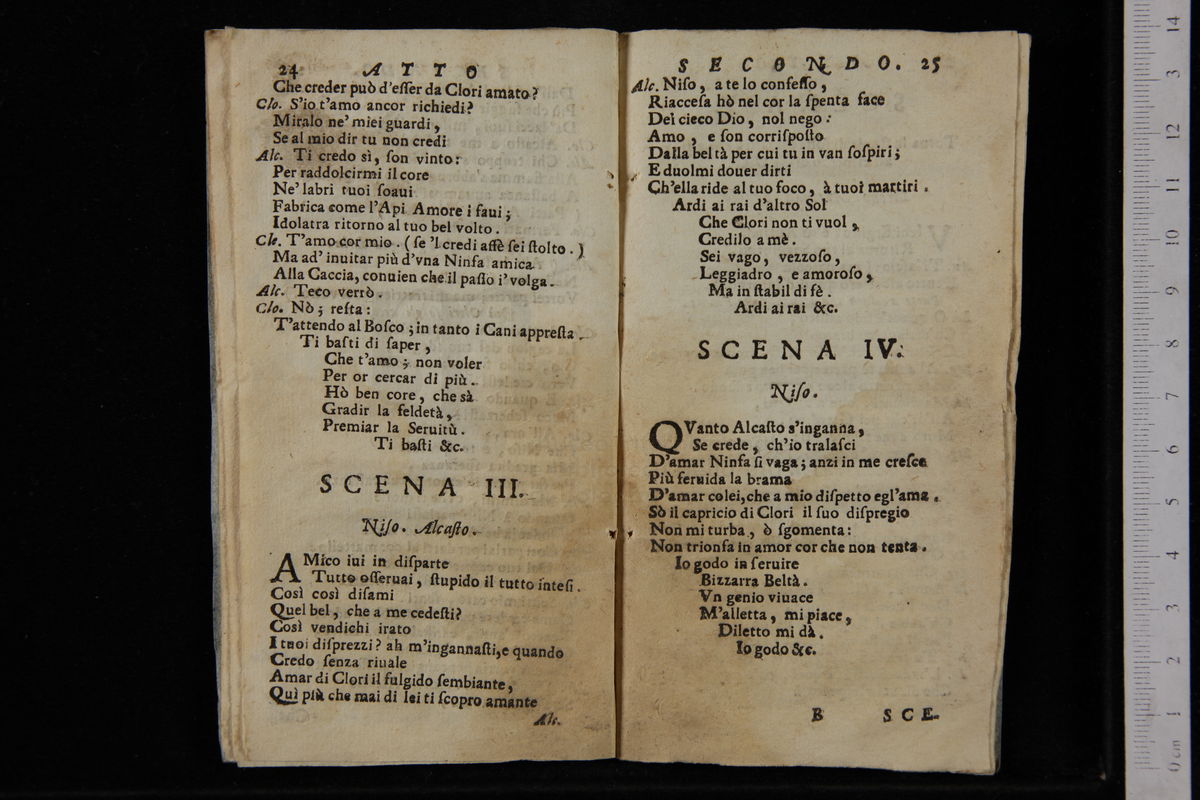 24 ATTO
Che creder può d'eſſer da Clori amato?
Clo. S'io t'amo ancor richiedi?
Miralo ne' miei guardi,
Se al mio dir tu non credi
Alc. Ti credo sì, ſon vinto:
Per raddolcirmi il core
Ne' labri tuoi ſoaui
Fabrica come l'Api Amore i faui;
Idolatra ritorno al tuo bel volto.
Clo. T'amo cor mio. (ſe 'l credi affè ſei ſtolto.)
Ma ad' inuitar più d'vna Ninfa amica
Alla Caccia, conuien che il paſſo i' volga.
Alc. Teco verrò.
Clo. Nò; reſta:
T'attendo al Boſco; in tanto i Cani appreſta.
Ti baſti di ſaper,
Che t'amo; non voler
Per or cercar di più.
Hò ben core, che sà
Gradir la feldetà,
Premiar la Seruitù.
Ti baſti &c.
SCENA III.
Niſo. Alcaſto.
AMico iui in diſparte
Tutto oſſeruai, ſtupido il tutto inteſi.
Così così diſami
Quel bel, che a me cedeſti?
Così vendichi irato
I tuoi diſprezzi? ah m'ingannaſti, e quando
Credo ſenza riuale
Amar di Clori il fulgido ſembiante,
Quì più che mai di lei ti ſcopro amante
Alc.
SECONDO. 25
Alc. Niſo, a te lo confeſſo,
Riacceſa hò nel cor la ſpenta face
Dei cieco Dio, nol nego:
Amo, e ſon corriſpoſto
Dalla beltà per cui tu in van ſoſpiri;
E duolmi douer dirti
Ch'ella ride al tuo foco, à tuoi martiri.
Ardi ai rai d'altro Sol
Che Clori non ti vuol,
Credilo a mè.
Sei vago, vezzoſo,
Leggiadro, e amoroſo,
Ma in ſtabil di fè.
Ardi ai rai &c.
SCENA IV.
Niſo.
QVanto Alcaſto s'inganna,
Se crede, ch'io tralaſci
D'amar Ninfa ſi vaga; anzi in me creſce
Più feruida la brama
D'amar colei, che a mio diſpetto egl'ama.
Sò il capricio di Clori il ſuo diſpregio
Non mi turba, ò ſgomenta:
Non trionfa in amor cor che non tenta.
Io godo in ſeruire
Bizzarra Beltà.
Vn genio viuace
M'alletta, mi piace,
Diletto mi dà.
Io godo &c.
B SCE-
14
13
12
11
10
9
8
7
6
5
4
3
2
1
0 cm